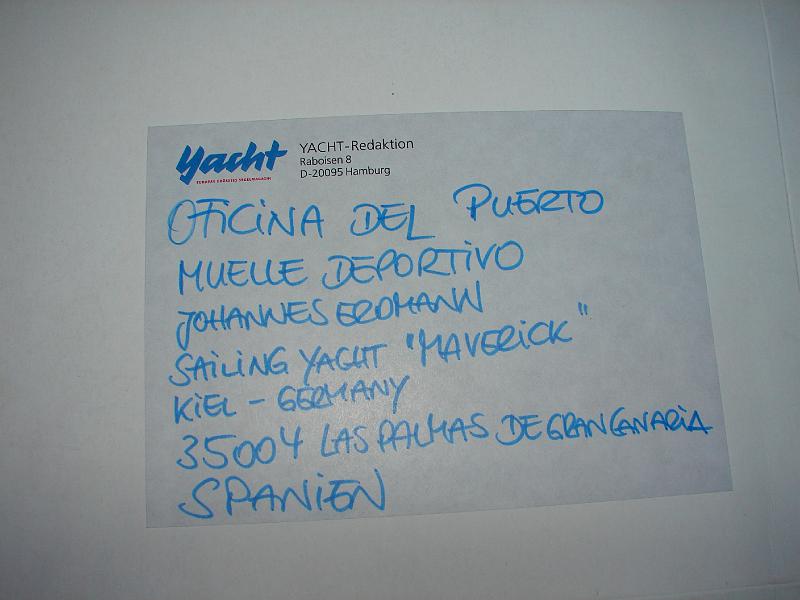 Yacht
EUROPAS GRÖSSTES SEGELMAGAZIN
YACHT-Redaktion
Raboisen 8
D-20095 Hamburg
OFICINA DEL PUERTO
MUELLE DEPORTIVO
JOHANNES ERDMANN
SAILING YACHT "MAVERICK"
KIEL - GERMANY
35004 LAS PALMAS DE GRAN CANARIA
SPANIEN